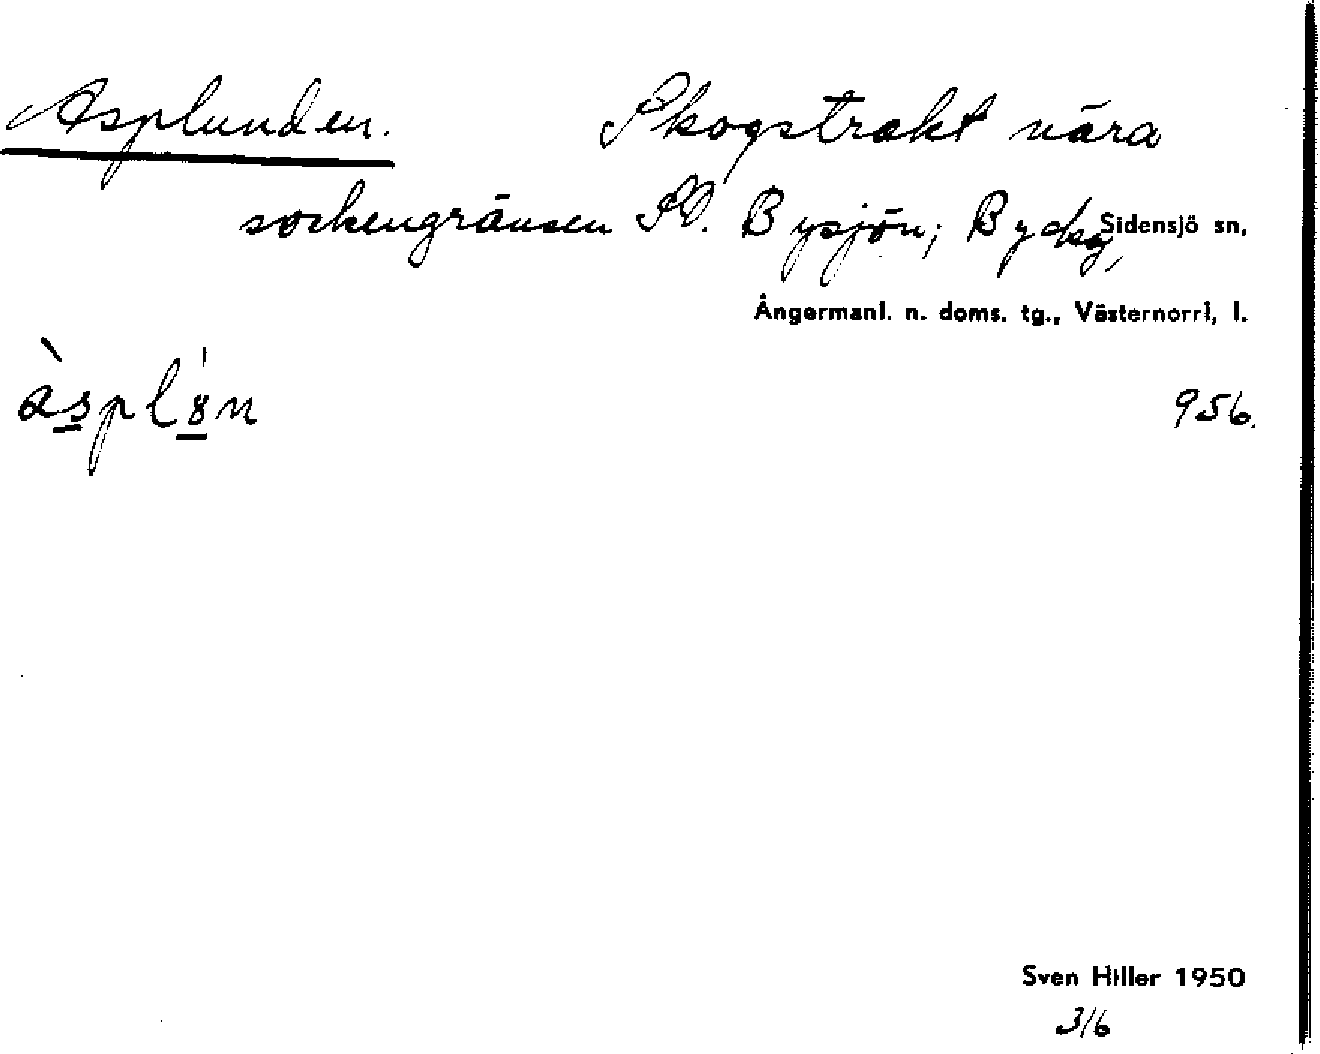 Asplunden. Skogstrakt nära
sockengränsen SV. Bysjön; Byckg, Sidensjö sn,
Ångermanl. n. doms. tg., Västernorrl, l.
àspl'ȣn 956.
Sven Hiller 1950
3/6